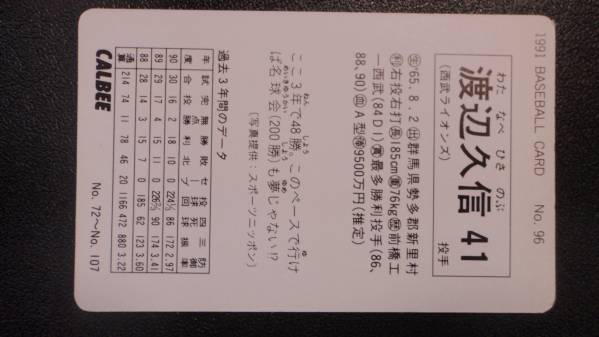 1991 BASEBALL CARD No. 96
わた なべ ひさ のぶ
渡辺久信 41
(西武ライオンズ) 投手
生'65.8.2出群馬県勢多郡新里村
利右投右打長185cm重76kg歴前橋工
―西武(84D1)賞最多勝利投手(86、
88、90)血A型俸9500万円(推定)
ねん しょう ゆ
ここ3年で48勝。このペースで行け
めいきゅうかい しょう ゆめ
ば名球会(200勝)も夢じゃない!?
(写真提供:スポーツニッポン)
過去3年間のデータ
年度 試合 完投 無点勝 勝利 敗北 セーブ 投球回 四死球 三振 防御率
90 30 16 2 18 10 0 224⅓ 86 172 2.97
89 29 17 4 15 11 0 226⅔ 90 174 3.41
88 28 14 3 15 7 0 185 62 123 3.60
通算 214 74 11 78 46 20 1166 472 880 3.22
CALBEE No. 72〜No. 107